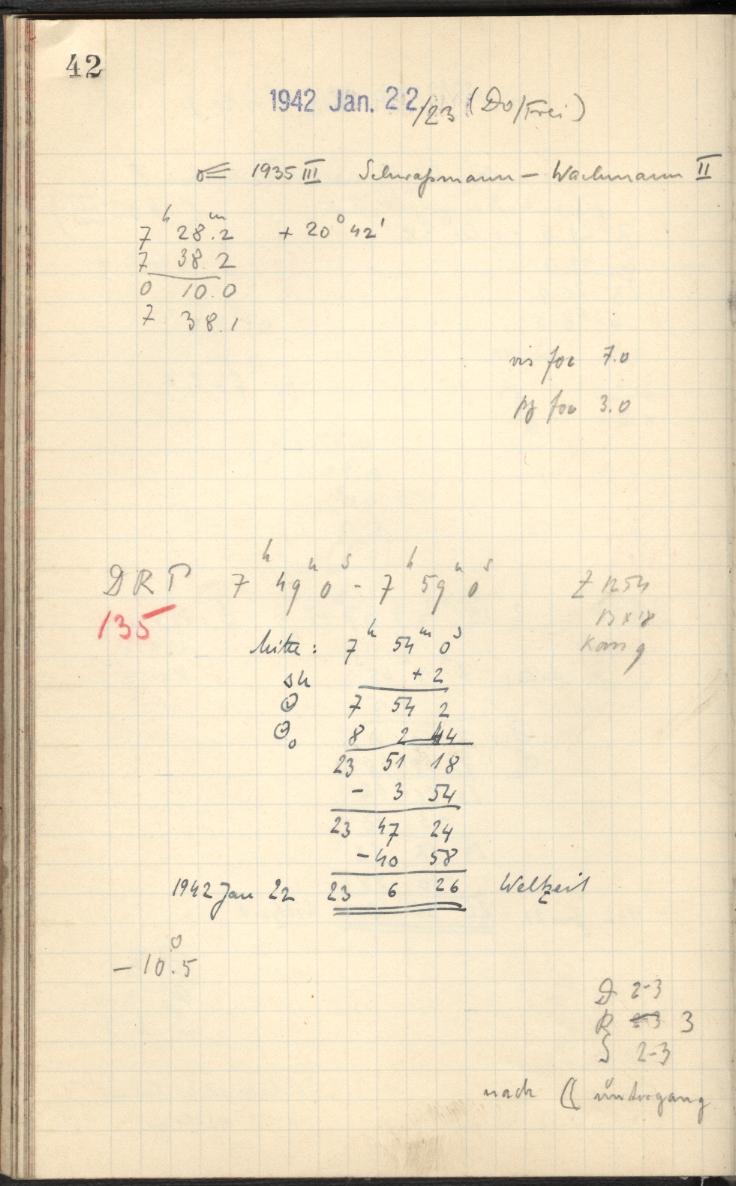 42
1942 Jan. 22/23 (Do/Frei)
1935 III Schwaßmann – Wachmann II
7ʰ 28.2ᵐ + 20° 42'
7 38.2
0 10.0
7 38.1
vis foc 7.0
pg foc 3.0
D R T 7ʰ 49ᵐ 0ˢ - 7ʰ 59ᵐ 0ˢ Z 1254
135 13 x 18
Mitte: 7ʰ 54ᵐ 0ˢ
Su + 2
Θ 7 54 2
Θ₀ 8 2 44
23 51 18
- 3 54
23 47 24
- 40 58
1942 Jan 22 23 6 26 Weltzeit
- 10°.5
D 2-3
R 3
S 2-3
nach ( untergang